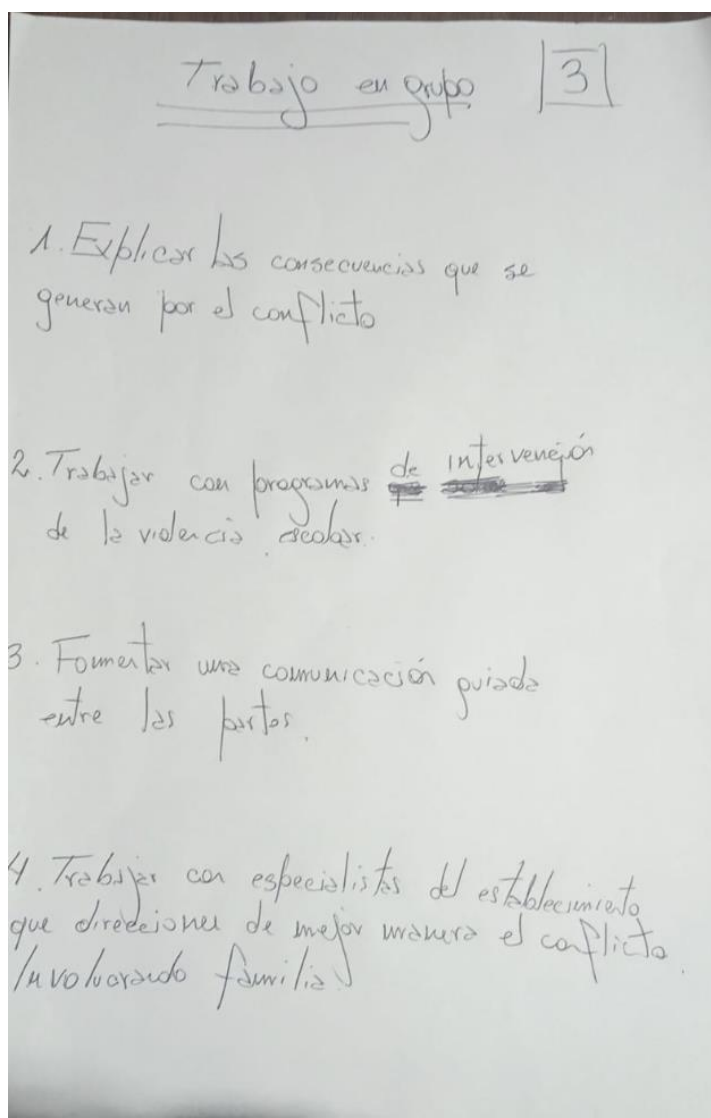 Trabajo en grupo 3
1. Explicar las consecuencias que se
generan por el conflicto
2. Trabajar con programas de intervención
de la violencia escolar.
3. Fomentar una comunicación guiada
entre las partes.
4. Trabajar con especialistas del establecimiento
que direccionen de mejor manera el conflicto.
Involucrando familia